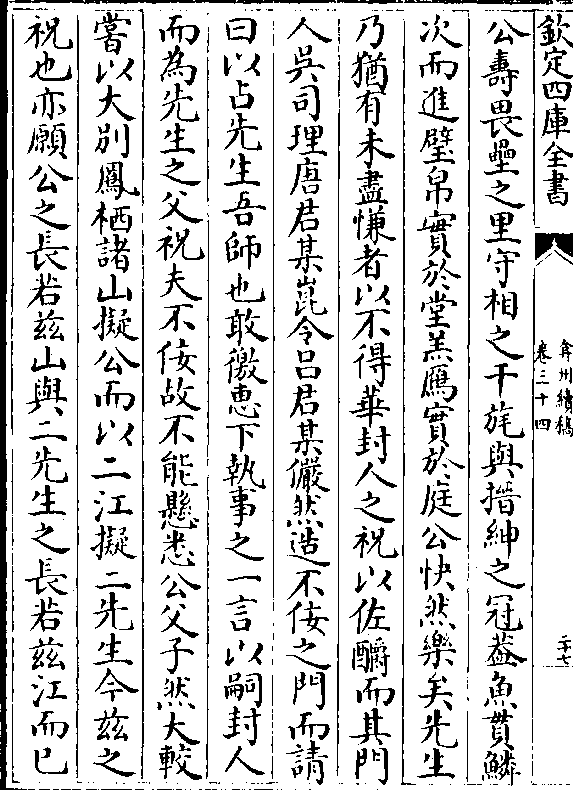 欽定四庫全書
弇州續稿
卷三十四
二十七
公壽畏壘之里守相之干旄與搢紳之冠葢魚貫鱗
次而進璧帛實於堂羔鴈實於庭公快然樂矣先生
乃猶有未盡慊者以不得華封人之祝以佐酹而其門
人吳司理唐君某崑令呂君某儼然造不佞之門而請
曰以占先生吾師也敢徼惠下執事之一言以嗣封人
而為先生之父祝夫不佞故不能懸悉公父子然大較
嘗以大别鳳栖諸山擬公而以二江擬二先生今兹之
祝也亦願公之長若兹山與二先生之長若兹江而已